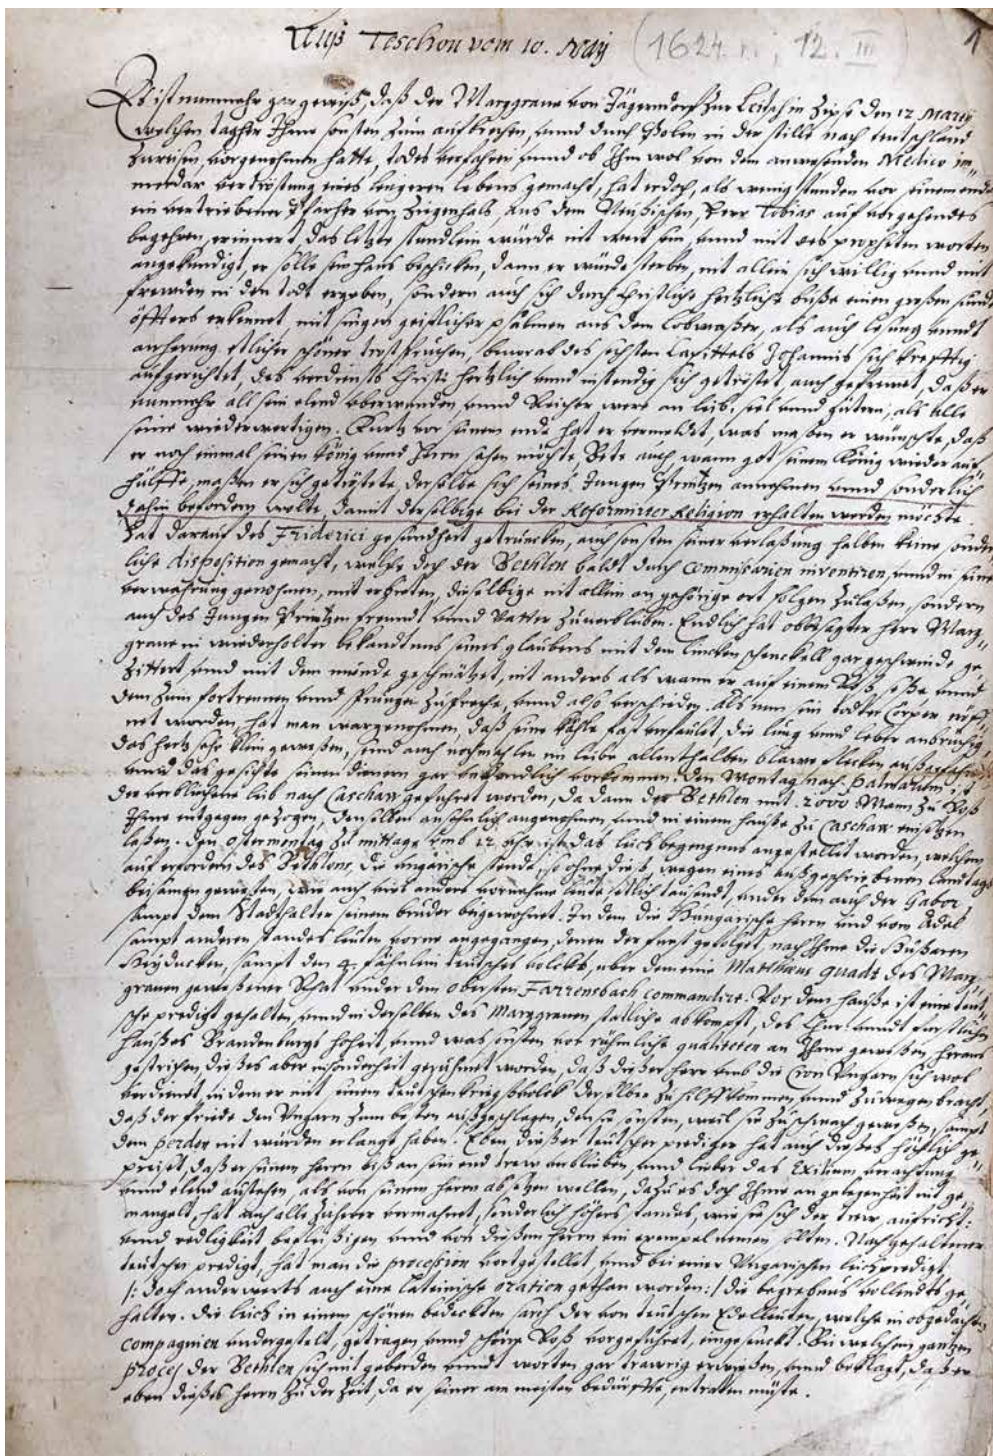 Auß Teschen vom 10. May (1624 r.; 12. III) 1
Es ist nunmehr gar gewiß, daß der Marggraue von Jägerndorf zur Leitsch in Zips den 12 Marty
welchen tag er Ihme sonsten zum aufbrechen, vnnd durch Polen in der stille nach teutschland
zureisen, vorgenohmen hatte, todes verfahren, vnnd ob Ihm wol von dem anwesenden Medico im=
merdar vertröstung eines lengeren lebens gemacht, hat er doch, als wenig stunden vor seinem ende
ein vertriebener Pfarher von Ziegenhals, aus dem Neißischen, Herr Tobias auf vorgehendes
begehren, erinnert, das letzte stundlein würde nit weit sein, vnnd mit des propheten worten
angekündigt, er solle sein haus beschicken, dann er würde sterben, nit allein sich willig vnnd mit
frewden in den todt ergeben, sondern auch sich durch Christliche hertzliche buße einen großen sünder
öffters erkennet, mit singen geistlicher psalmen aus dem lobwaßer, als auch lesung vnndt
anhörung etlicher schöner trostsprüchen, beuorab des sechsten Capittels Johannis sich krefftig
aufgerichtet, des verdiensts Christi hertzlich vnnd instendig sich getröstet, auch gefrewet, daß er
nunmehr all sein elend vberwunden, vnnd Reicher were an leib, seel vnnd gütern, als alle
seine wiederwertigen. Kurtz vor seinem ende hat er vermeldet, was maßen er wünschte, daß
er noch einmal seinen König vnnd Herrn sehen möchte, Bete auch wann got seinem König wieder auf
hülffe, maßen er sich getröstete, derselbe sich seines Jungen Printzen annehmen vnnd sonderlich
dahin befördern wolte, damit derselbige bei der Reformirter Religion erhalten werden möchte.
Hat darauf des Friderici gesundheit getruncken, auch sonsten seiner verlaßung halben keine sonder=
liche disposition gemacht, welche doch der Bethlen baldt durch commissarien inventiren, vnnd in seine
verwahrung genohmen, mit erbieten, dieselbige nit allein an gehörige ort folgen zulaßen, sondern
auch des Jungen Printzen freund vnnd Vatter zuuerbleiben. Endlich hat obbesagter herr Marg=
graue in wiederholter bekandtnus seines glaubens mit dem lincken schenckell gar geschwinde ge=
zittert vnnd mit dem munde geschmätzet, nit anders als wann er auf einem Roß seße vnnd
dem zum fortrennen vnnd sprungen zusprache, vnnd also verschieden. Als nun sein todter Cörper eröff=
net worden, hat man wargenohmen, daß seine kähle fast verfault, die lung vnnd leber anbrüchig,
das hertz sehr klein gewesen, seind auch nochmehler im leibe allenthalben blawe flecken
vnnd das gesichte seinen dienern gar vorkommen. Den Montag nach Palmarum ist
der verblichene leib nach Caschaw geführet worden, da dann der Bethlen mit 2000 Mann zu Roß
Ihme entgegen gezogen, denselben ansehnlich angenohmen vnnd in einem hauße zu Caschaw einsetzen
laßen. Den Ostermontag zu mittage vmb 12 vhr ist das leichbegengnus angestellet worden, welchem
auf erfordern des Bethlens, die vngarische stende, so ohne dieß, wegen eines außgeschriebenen landtags
beisamen gewesen, wie auch viel andere vornehme leute etlich tausendt, vnder dem auch der Gabor
sampt dem Stadthalter seinem bruder beigewohnet. In dem die Hungarische herrn vnd vom Adel
sampt anderen standes leüten vorne angegangen, denen der fürst gefolget, nach Ihme die Hußaren
Heyducken, sampt den 4. fähnlein teutsches volcks, vber dem eine Matthæus Quadt des Marg=
grauen gewesener Rhat vnder dem Obersten Farrensbach commandirt. Vor dem hauße ist eine teut=
sche predigt gehalten, vnnd in derselben des Marggrauen stattliche abkompft, des Chur vnndt fürstlichen
haußes Brandenburgs hoheit, vnnd was sonsten vor rühmliche qualiteten an Ihme gewesen, heraus
gestrichen, dießes aber insonderheit gerühmet worden, daß dießer herr vmb die Cron Vngarn sich wol
verdienet, in dem er mit seinem teutschen kriegsvolck derselben zu hilff kommen, vnnd zuwegen bracht,
daß der friede den Vngarn zum besten außgeschlagen, den sie sonsten, weil sie zu schwach gewesen, sampt
dem perdon nit würden erlangt haben. Eben dießer teutscher prediger hat auch dießes höchlich ge=
preist, daß er seinem herrn biß an sein end trew verblieben, vnnd lieber das Exilium, verachtung
vnnd elend austehen, als von seinem herrn absetzen wollen, dazu es doch Ihme an gelegenheit nit ge=
mangelt, hat auch alle zuhörer vermahnet, sonderlich höhers standes, wie sie sich der trew, aufricht:
vnnd redligkeit befleißigen vnnd von dießem herrn ein exempel nemen solten. Nach gehaltener
teutscher predigt, hat man die procession vortgestellet, vnnd bei einer Vngarischen leichpredigt
/: doch anderwerts auch eine Lateinische oration gethan worden :/ die begrebnus vollendts ge=
halten. Die leich in einem schönen bedeckten sarch der von teutschen Edelleuten, welche in obgedachten
compagnien vndergestelt, getragen, vnnd schöne Roß vorgeführet, eingesenckt. Bei welchem gantzen
proces der Bethlen sich mit geberden vnndt worten gar trawrig erwiesen, vnnd beklagt, daß er
eben dießes herrn zu der zeit, da er seiner am meisten bedürffte, entraten müste.